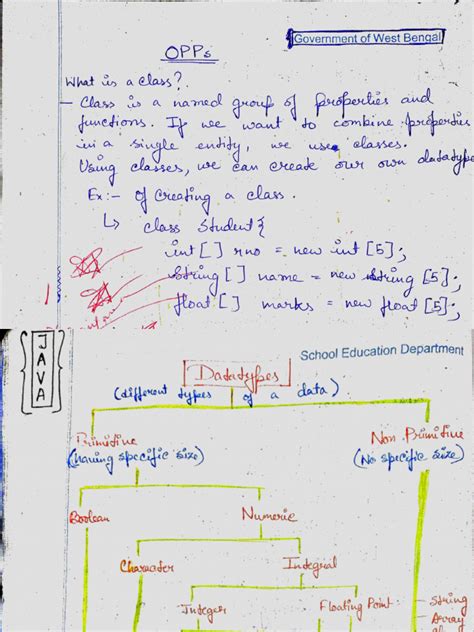 Government of West Bengal
OPPs
What is a class?
- Class is a named group of properties and
functions. If we want to combine properties
in a single entity, we use classes.
Using classes, we can create our own datatype
Ex:- of creating a class.
↳ class Student{
int [] rno = new int [5];
String [] name = new string [5];
float [] marks = new float [5];
JAVA
School Education Department
Datatypes
(different types of a data)
Primitive
(having specific size)
Non Primitive
(No specific size)
Boolean
Numeric
Character
Integral
Integer
Floating Point
- String
Array